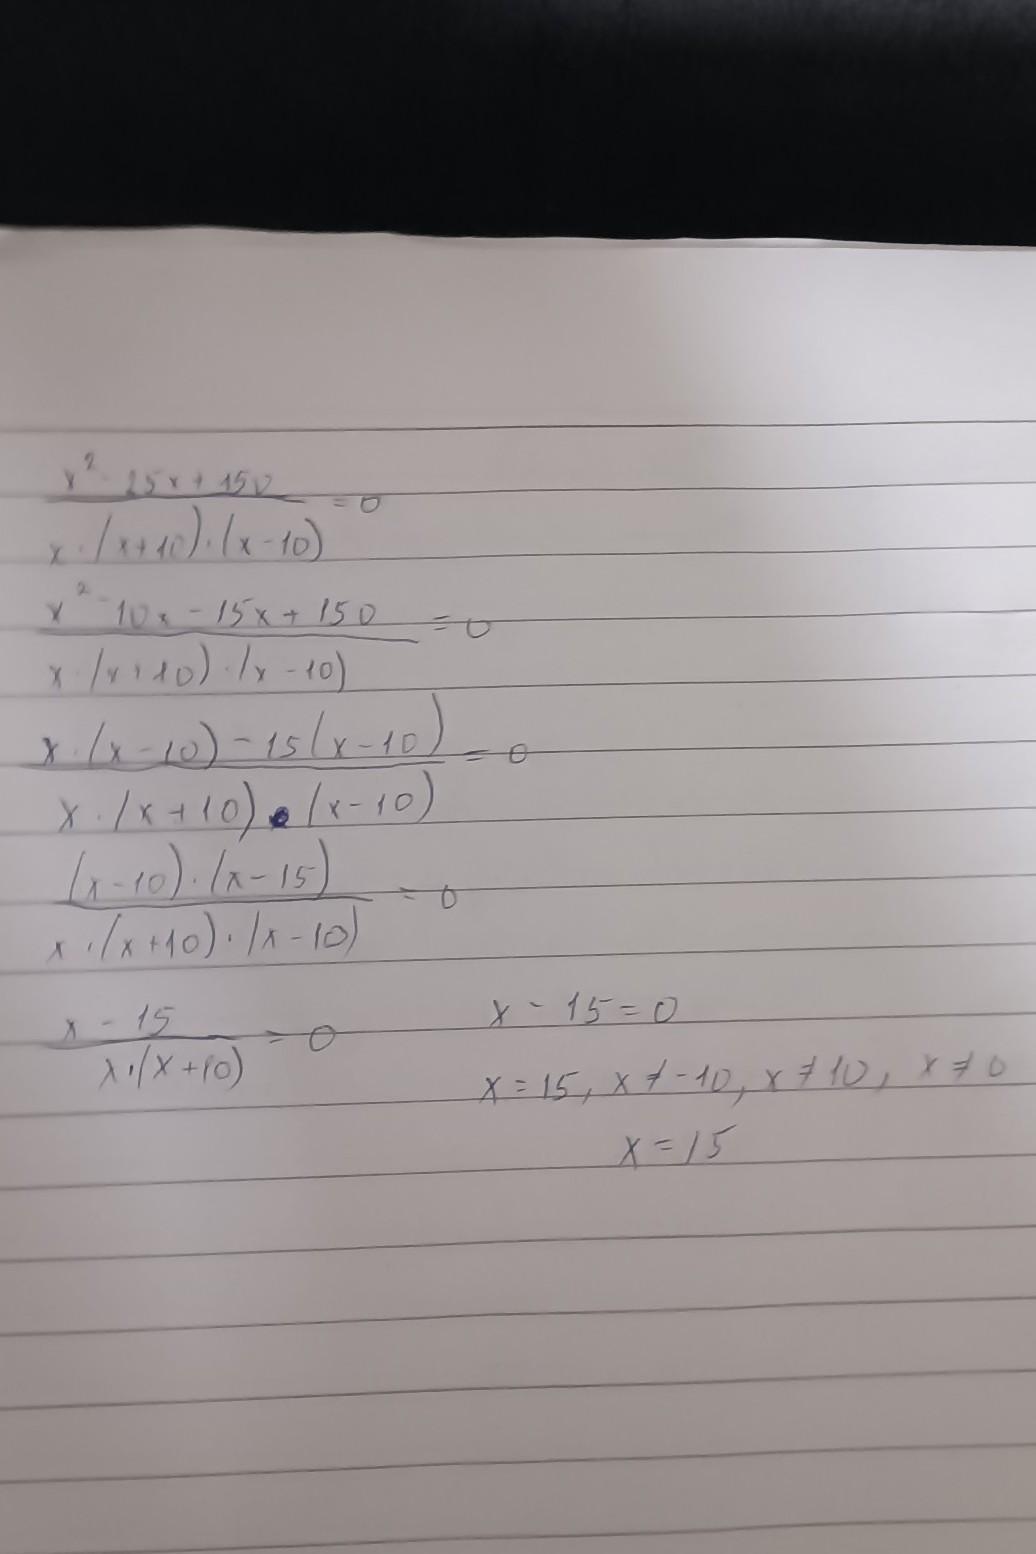 x² - 25x + 150
= 0
x · (x+10) · (x-10)
x² - 10x - 15x + 150
= 0
x · (x+10) · (x-10)
x · (x-10) - 15(x-10)
= 0
x · (x+10) · (x-10)
(x-10) · (x-15)
= 0
x · (x+10) · (x-10)
x - 15
= 0
x · (x+10)
x - 15 = 0
x = 15, x ≠ -10, x ≠ 10, x ≠ 0
x = 15